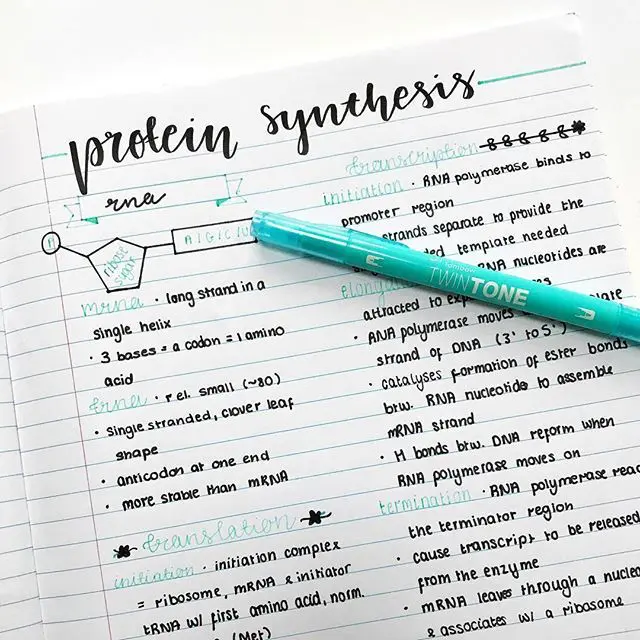 protein synthesis
rna
ribose sugar
A|G|C|U
mrna · long strand in a
single helix
· 3 bases = a codon = 1 amino
acid
trna · rel. small (~80)
· single stranded, clover leaf
shape
· anticodon at one end
· more stable than mRNA
translation
initiation · initiation complex
= ribosome, mRNA & initiator
tRNA w/ first amino acid, norm.
(Met)
transcription
initiation · RNA polymerase binds to
promoter region
strands separate to provide the
template needed
nucleotides are
attracted to
· RNA polymerase moves
strand of DNA (3' to 5')
· catalyses formation of ester bonds
btw. RNA nucleotides to assemble
mRNA strand
· H bonds btw. DNA reform when
RNA polymerase moves on
termination · RNA polymerase
the terminator region
· cause transcript to be released
from the enzyme
· mRNA leaves through a
& associates w/ a ribosome
Tombow
TWINTONE